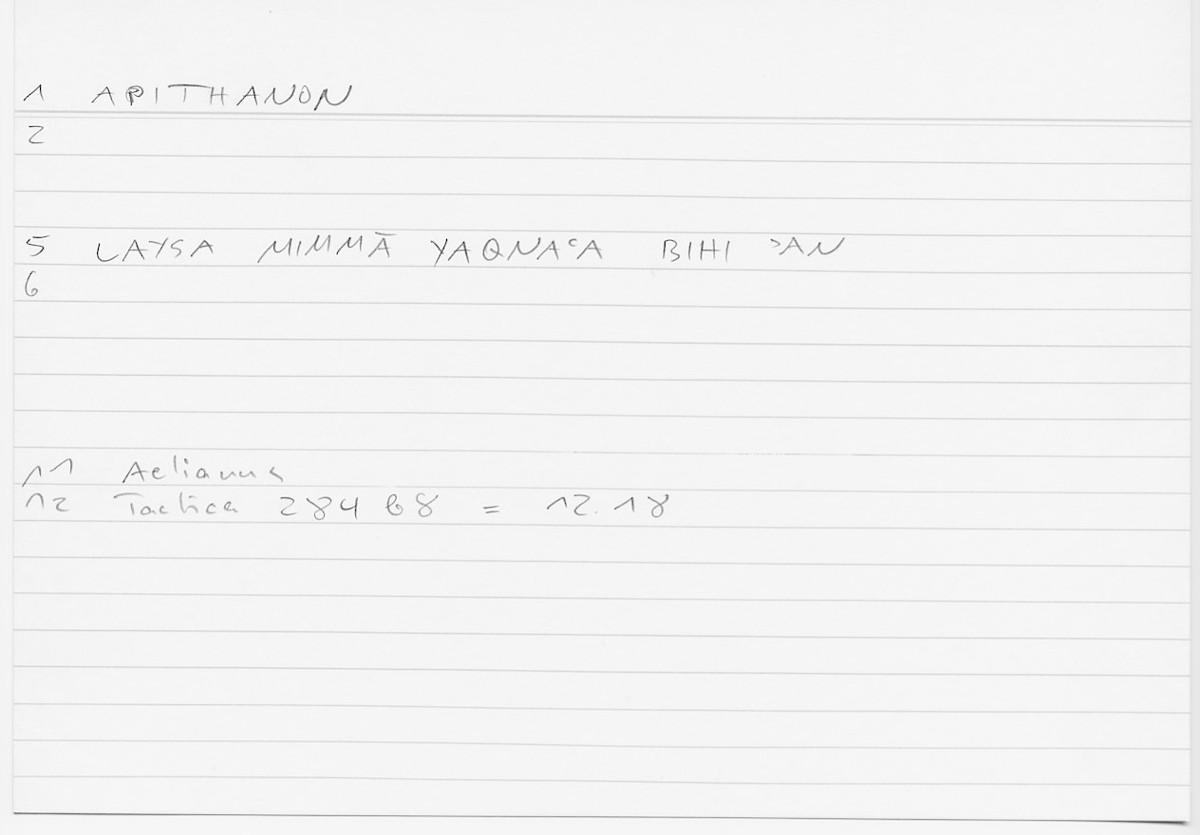 1 APITHANON
2
5 LAYSA MIMMĀ YAQNAʿA BIHI ʾAN
6
11 Aelianus
12 Tactica 284 b8 = 12.18